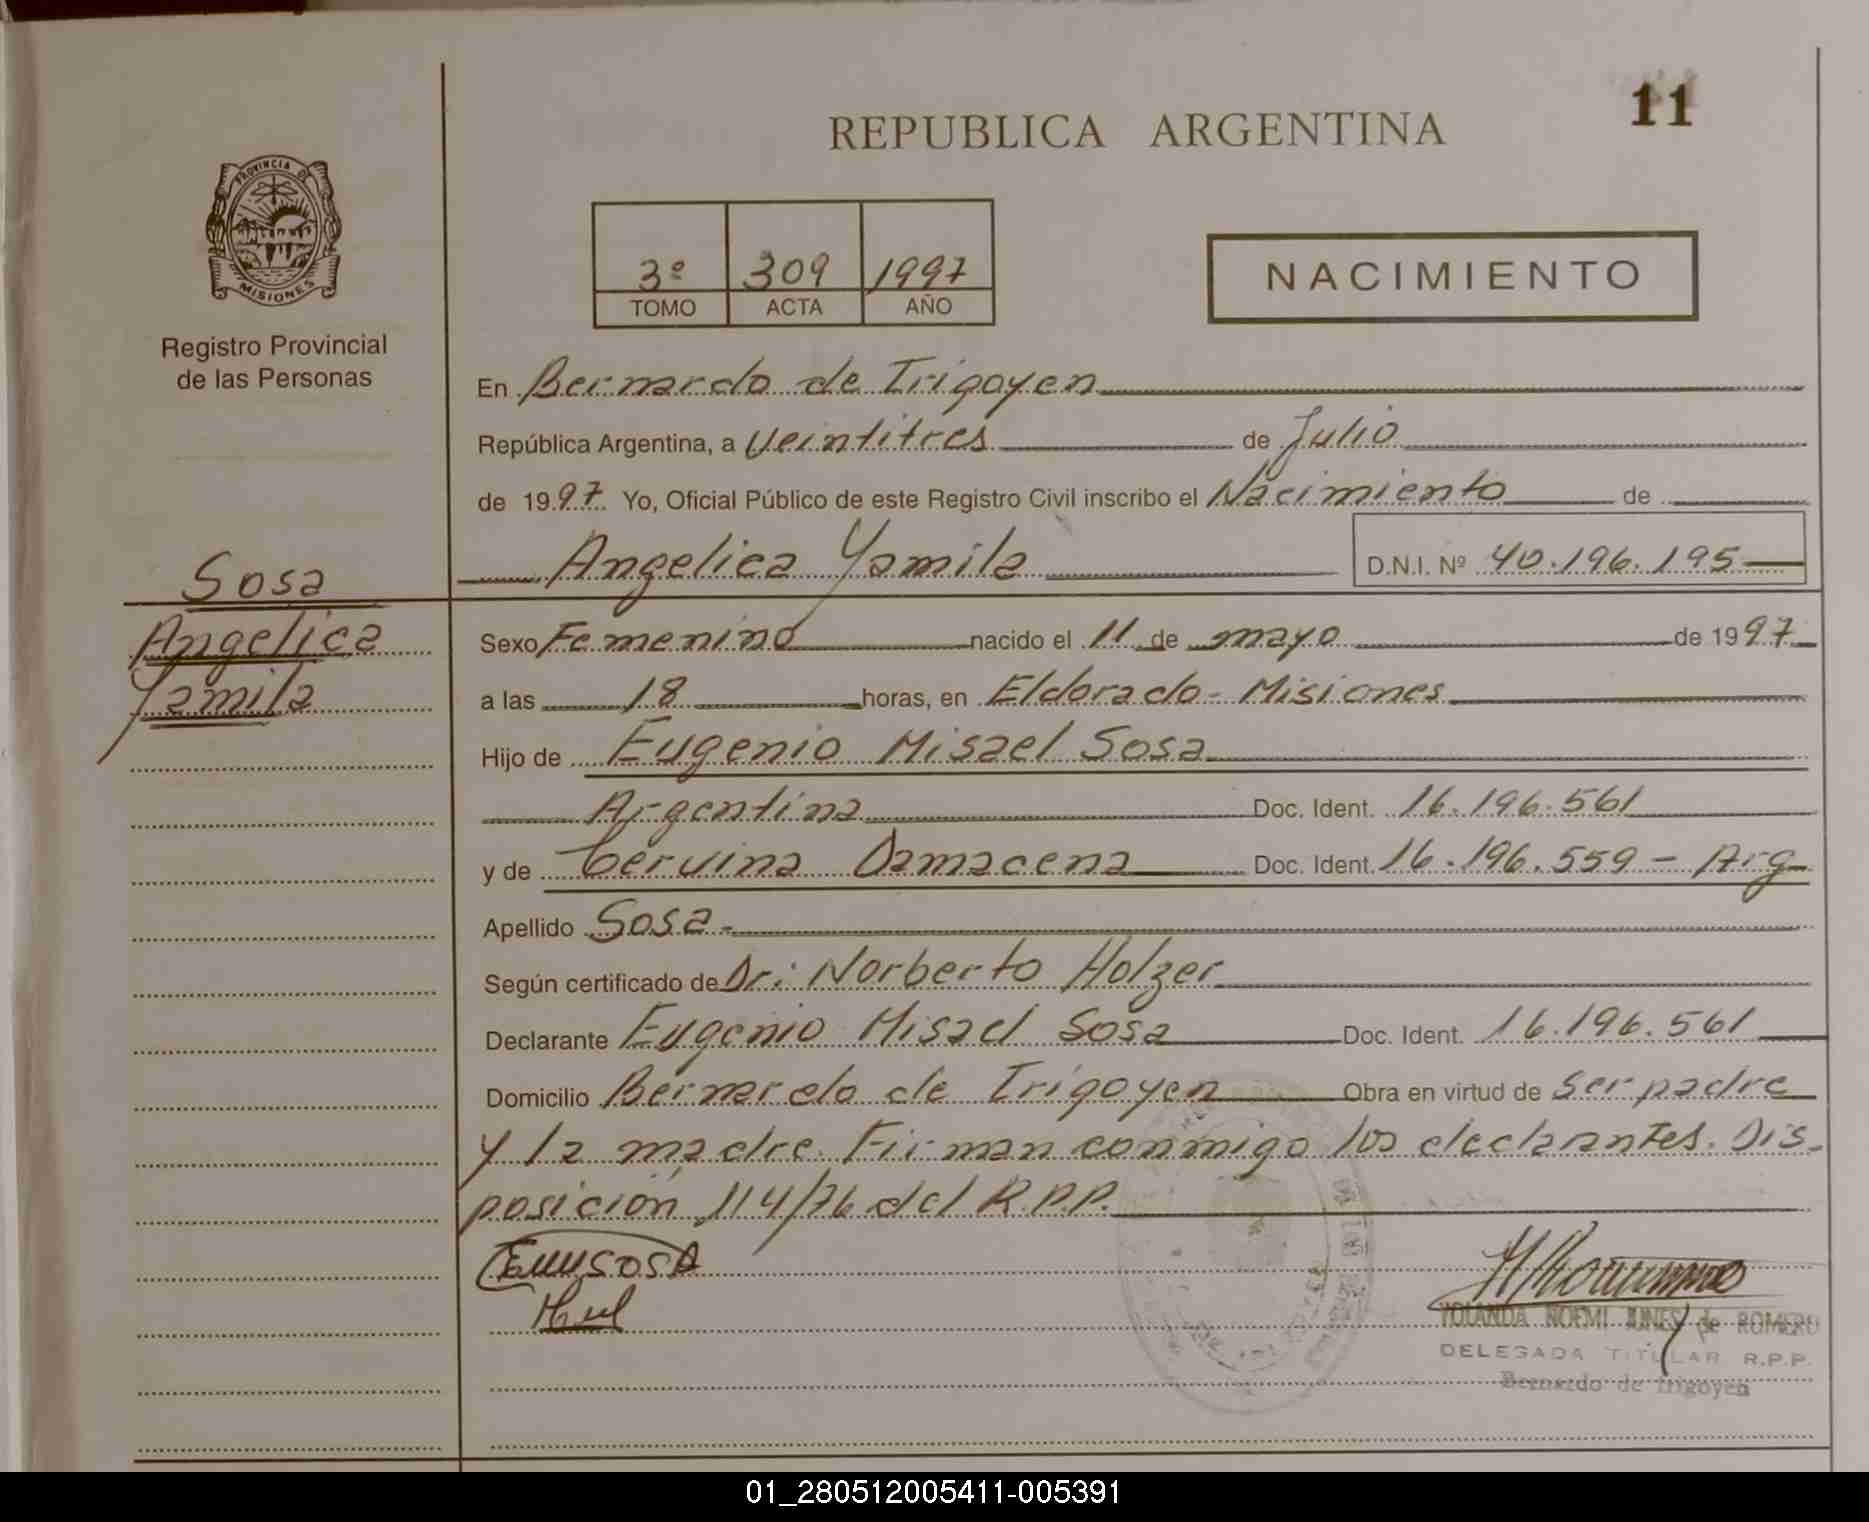 11
REPUBLICA ARGENTINA
PROVINCIA DE
MISIONES
Registro Provincial
de las Personas
3º 309 1997
TOMO ACTA AÑO
NACIMIENTO
En Bernardo de Irigoyen
República Argentina, a Veintitres de Julio
de 1997 Yo, Oficial Público de este Registro Civil inscribo el Nacimiento de
Angelica Yamila D.N.I. Nº 40.196.195
Sosa
Angelica
Yamila
Sexo Femenino nacido el 11 de mayo de 1997
a las 18 horas, en Eldorado - Misiones
Hijo de Eugenio Misael Sosa
Argentina Doc. Ident. 16.196.561
y de Cervina Damacena Doc. Ident. 16.196.559 - Arg
Apellido Sosa -
Según certificado de Dr: Norberto Holzer
Declarante Eugenio Misael Sosa Doc. Ident. 16.196.561
Domicilio Bernardo de Irigoyen Obra en virtud de ser padre
y la madre. Firman conmigo los declarantes. Dis-
posición 114/76 del R.P.P.
YOLANDA NOEMI de ROMERO
DELEGADA TITULAR R.P.P.
Bernardo de Irigoyen
01_280512005411-005391